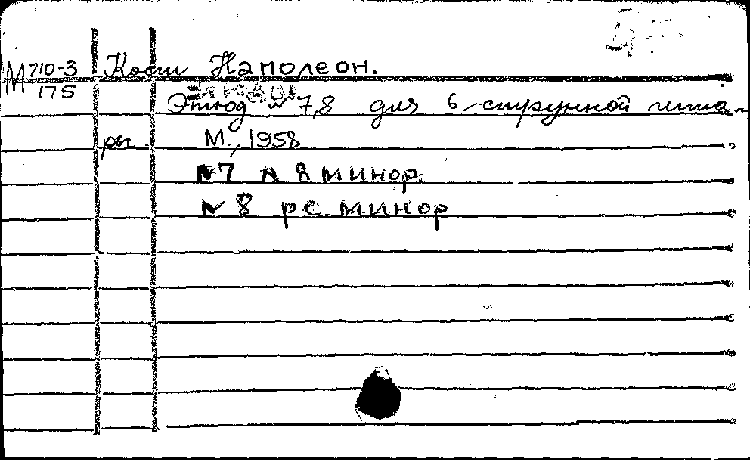 М710-3 Кост Наполеон.
175
Этюд № 7,8 для 6-струнной гита-
ры. М., 1958
№7 ля минор
№8 ре минор